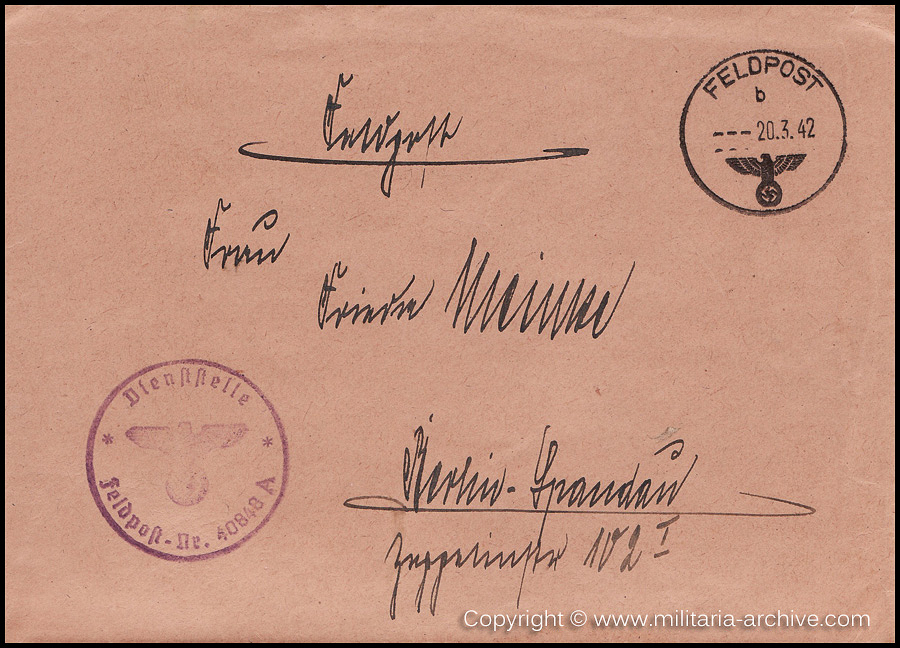 Feldpost
FELDPOST
b
--- 20.3.42
Frau
Frieda Meinke
Dienststelle
* *
Feldpost-Nr. 40848 A
Berlin-Spandau
Zeppelinstr 102 I
Copyright © www.militaria-archive.com